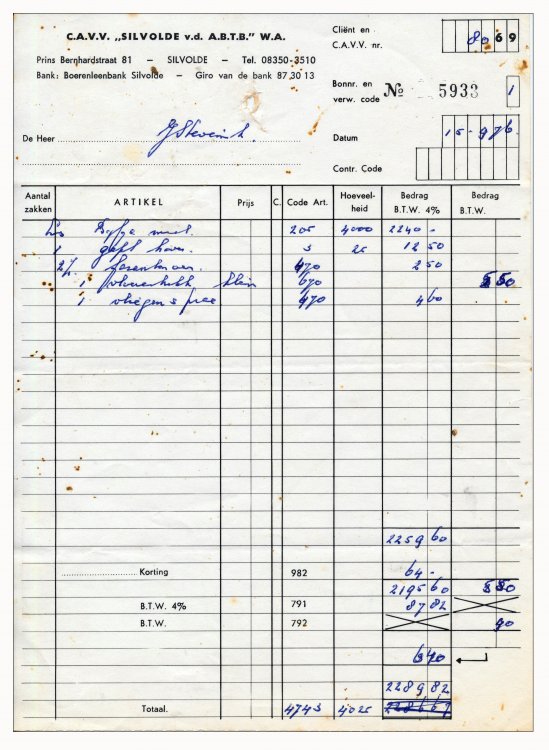 C.A.V.V. „SILVOLDE v.d. A.B.T.B." W.A.
Prins Bernhardstraat 81 — SILVOLDE — Tel. 08350-3510
Bank: Boerenleenbank Silvolde — Giro van de bank 87 30 13
Cliënt en C.A.V.V. nr. 8069
Bonnr. en verw. code № 5933 1
De Heer
Datum 15-976.
Contr. Code
Aantal zakken ARTIKEL Prijs C. Code Art. Hoeveel-heid Bedrag B.T.W. 4% Bedrag B.T.W.
205 4000 2240 -
1 haver 3 25 12 50
470 2 50
1 klein 670 5 50
1 470 4 60
2259 60
Korting 982 64 -
2195 60 5 50
B.T.W. 4% 791 87 82
B.T.W. 792 90
6 40
2289 82
Totaal. 4743 4025